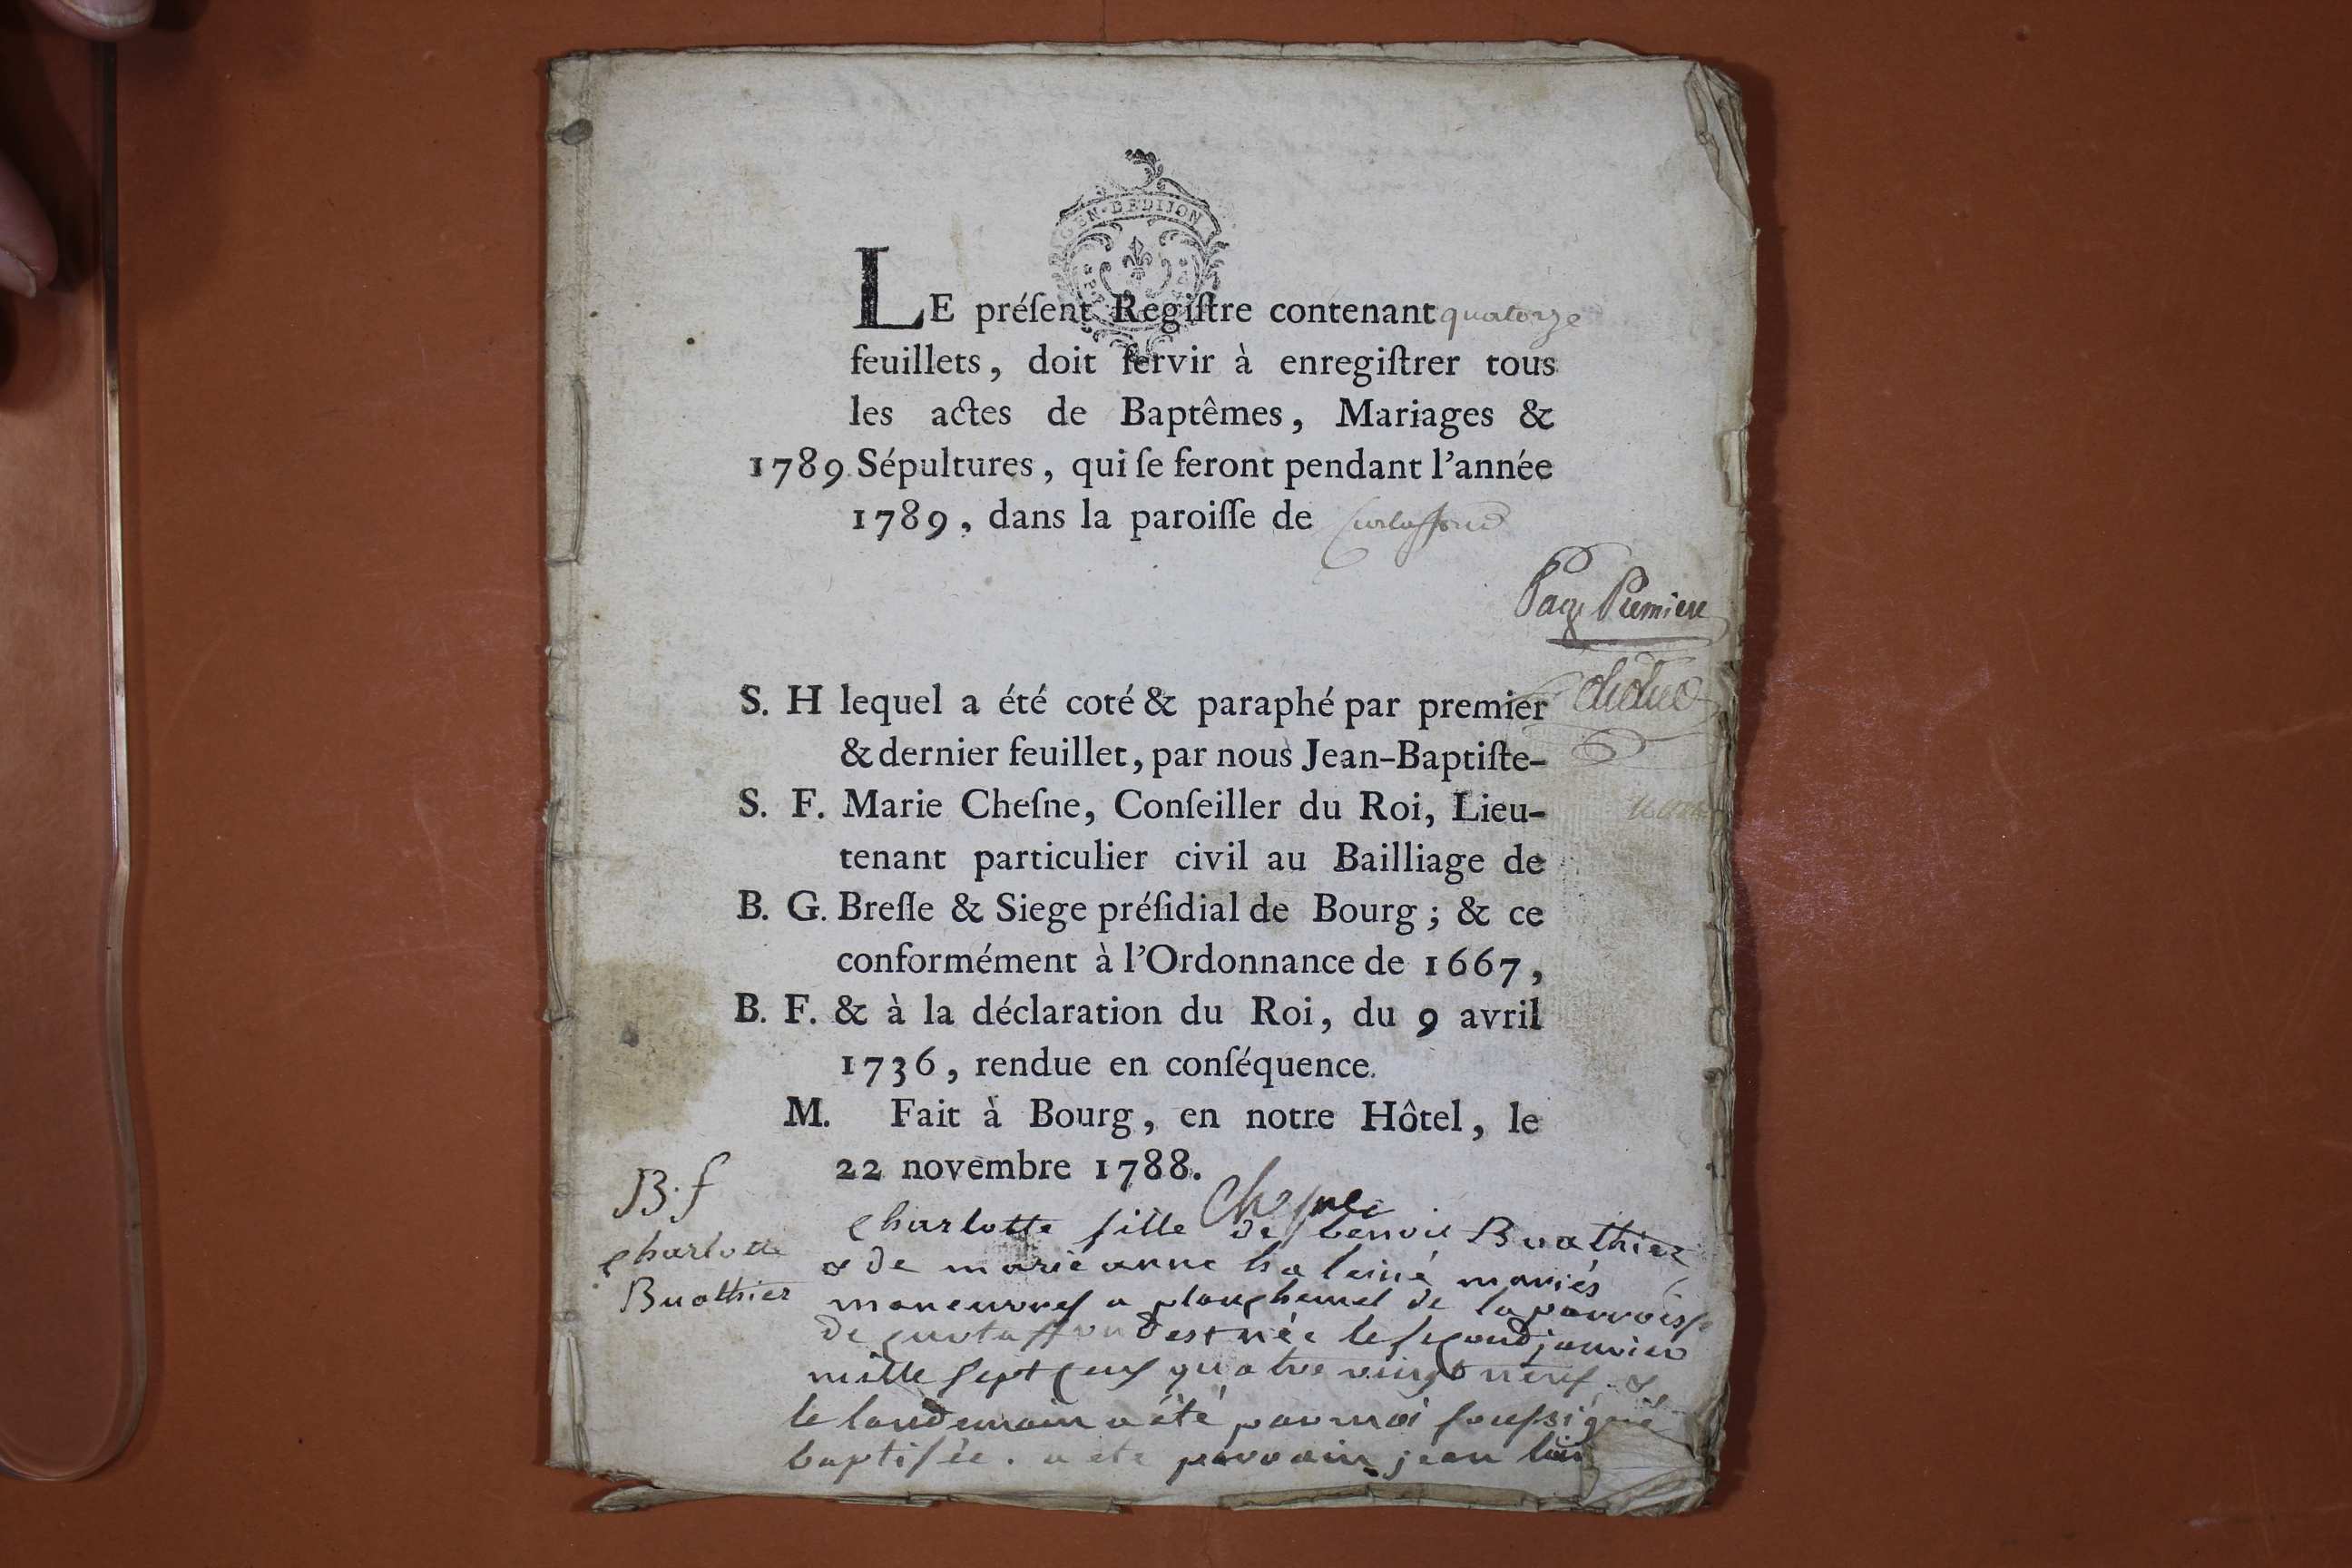 GEN·DE DIJON
LE préſent Regiſtre contenant quatorze
feuillets, doit ſervir à enregiſtrer tous
les actes de Baptêmes, Mariages &
1789 Sépultures, qui ſe feront pendant l'année
1789, dans la paroiſſe de Curtaffond
Page Premiere
S. H lequel a été coté & paraphé par premier
& dernier feuillet, par nous Jean-Baptiſte-
S. F. Marie Cheſne, Conſeiller du Roi, Lieu-
tenant particulier civil au Bailliage de
B. G. Breſſe & Siege préſidial de Bourg; & ce
conformément à l'Ordonnance de 1667,
B. F. & à la déclaration du Roi, du 9 avril
1736, rendue en conſéquence.
M. Fait à Bourg, en notre Hôtel, le
22 novembre 1788.
Cheſne
B. f
charlotte
Buathier
charlotte fille de benoit Buathier
& de marie anne mariés
maneuvres a de la parroisse
de curtaffond est née le ſecond janvier
mille ſept cens quatre vingt neuf, &
le landemain a été par moi ſouſsigné
baptiſée. a été parrain jean